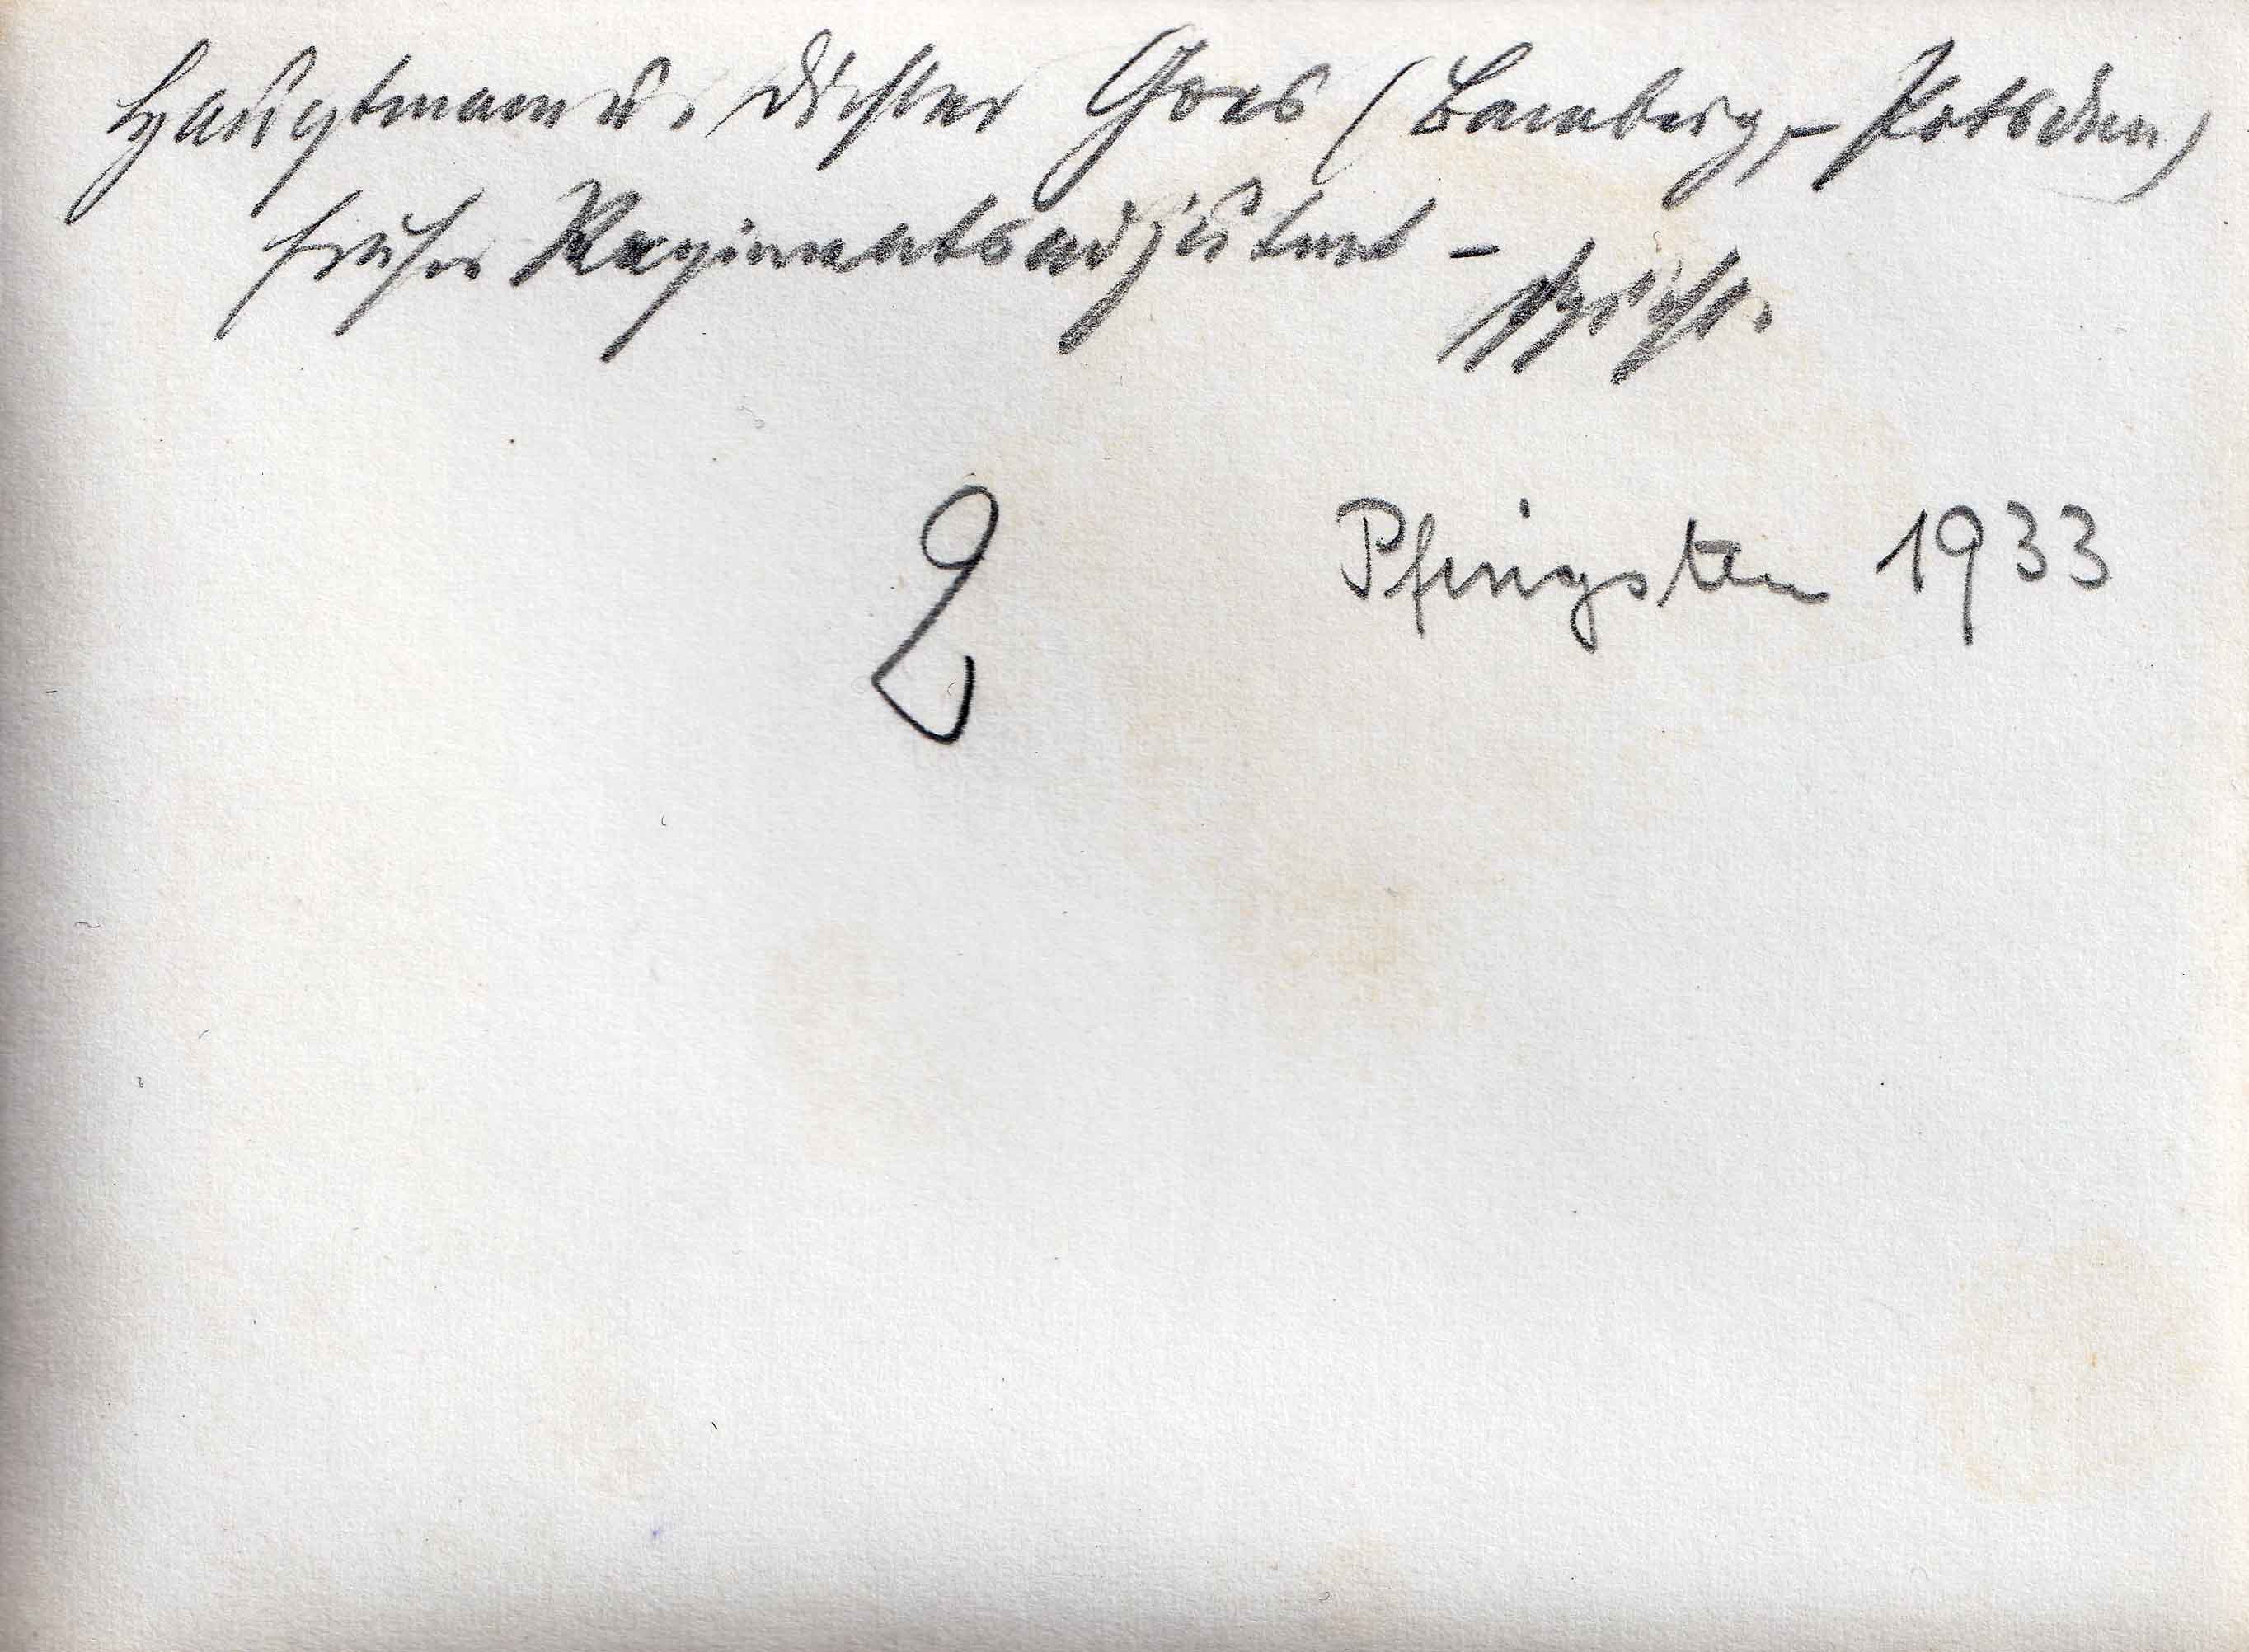 Hauptmann u. Dichter Goes (Bamberg,- Potsdam)
früher Regimentsadjutant -
spricht.
2
Pfingsten 1933